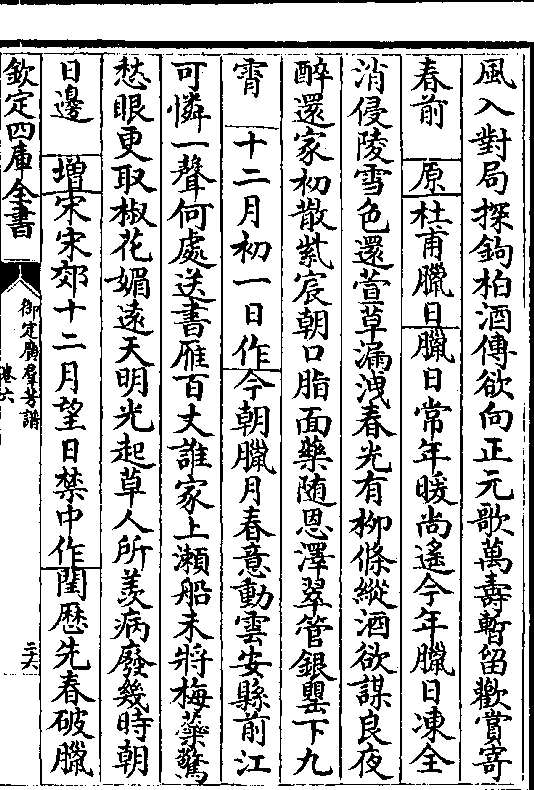 風入對局探鉤柏酒傳欲向正元歌萬壽暫留歡賞寄
春前　原杜甫臘日臘日常年暖尚遙今年臘日凍全
消侵陵雪色還萱草漏洩春光有柳條縱酒欲謀良夜
醉還家初散紫宸朝口脂面藥随恩澤翠管銀罌下九
霄　十二月初一日作今朝臘月春意動雲安縣前江
可憐一聲何處送書雁百丈誰家上瀨船未將梅蘂驚
愁眼更取椒花媚遠天明光起草人所羨病廢幾時朝
日邊　增宋宋郊十二月望日禁中作閏歴先春破臘
欽定四庫全書
御定廣羣芳譜
卷六
二六